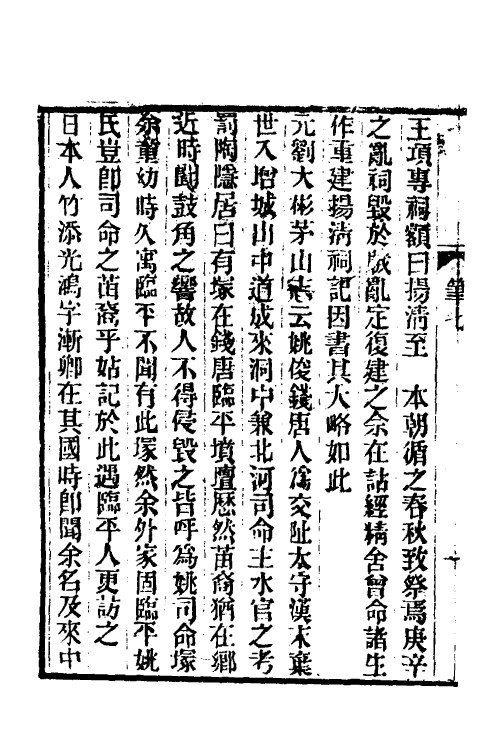 王項專祠額曰揚清至　本朝循之春秋致祭焉庚辛
之亂祠毀於賊亂定復建之余在詁經精舍曾命諸生
作重建揚清祠記因書其大略如此
元劉大彬茅山志云姚俊錢唐人為交阯太守漢末棄
世入增城山中道成來洞中兼北河司命主水官之考
罰陶隱居曰有塚在錢唐臨平墳壇歷然苗裔猶在鄉
近時聞鼓角之響故人不得侵毀之皆呼為姚司命塚
余童幼時久寓臨平不聞有此塚然余外家固臨平姚
氏豈即司命之苗裔乎姑記於此遇臨平人更訪之
日本人竹添光鴻字漸卿在其國時即聞余名及來中
筆七